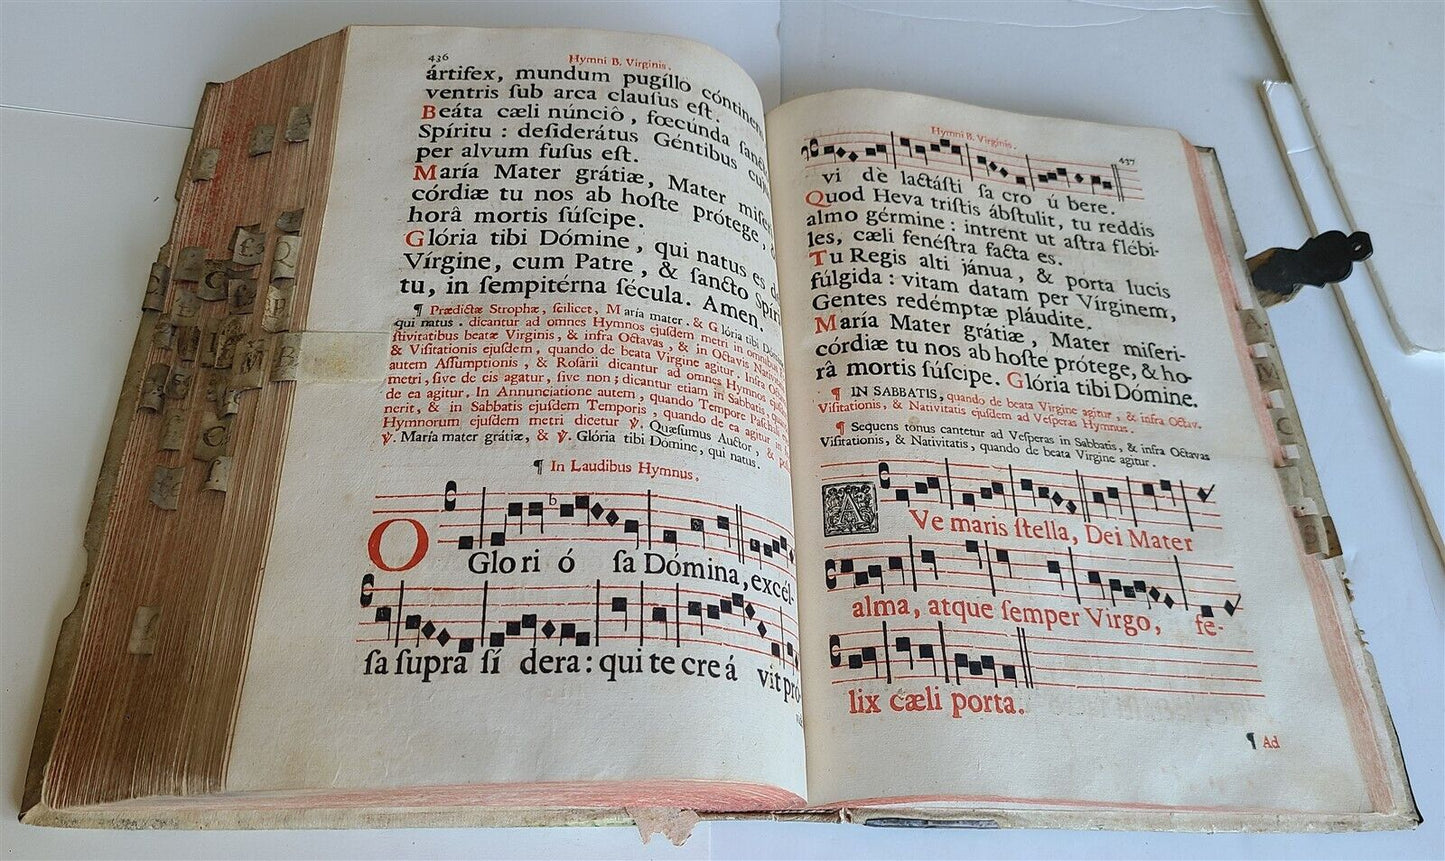 436
Hymni B. Virginis.
ártifex, mundum pugíllo cóntinens
ventris ſub arca clauſus eſt.
Beáta cæli núnciô, fœcúnda ſanct
Spíritu : deſiderátus Géntibus cuju
per alvum fuſus eſt.
María Mater grátiæ, Mater miſeri
córdiæ tu nos ab hoſte prótege,
horâ mortis ſúſcipe.
Glória tibi Dómine, qui natus es de
Vírgine, cum Patre, & ſancto Spíri
tu, in ſempitérna ſécula. Amen.
¶ Prædictæ Strophæ, ſcilicet, María mater. & Glória tibi Dómine
qui natus. dicantur ad omnes Hymnos ejuſdem metri in omnibus
ſtivitatibus beatæ Virginis, & infra Octavas, & in Octavis Nativit
& Viſitationis ejuſdem, quando de beata Virgine agitur. Infra Octav
autem Aſſumptionis, & Roſarii dicantur ad omnes Hymnos ejuſdem
metri, ſive de eis agatur, ſive non; dicantur etiam in Sabbatis, quando
de ea agitur. In Annunciatione autem, quando Tempore Paſchali
nerit, & in Sabbatis ejuſdem Temporis, quando de ea agitur in
Hymnorum ejuſdem metri dicetur ℣. Quæſumus Auctor, & poſt
℣. María mater grátiæ, & ℣. Glória tibi Dómine, qui natus.
¶ In Laudibus Hymnus.
b
O Glori ó ſa Dómina, excél-
ſa ſupra ſí dera: qui te cre á vit pro-
Hymni B. Virginis.
437
vi dè lactáſti ſa cro ú bere.
Quod Heva triſtis ábſtulit, tu reddis
almo gérmine: intrent ut aſtra flébi-
les, cæli fenéſtra facta es.
Tu Regis alti jánua, & porta lucis
fúlgida: vitam datam per Vírginem,
Gentes redémptæ pláudite.
María Mater grátiæ, Mater miſeri-
córdiæ tu nos ab hoſte prótege, & ho-
râ mortis ſúſcipe. Glória tibi Dómine.
¶ IN SABBATIS, quando de beata Virgine agitur, & infra Octav.
Viſitationis, & Nativitatis ejuſdem ad Veſperas Hymnus.
¶ Sequens tonus cantetur ad Veſperas in Sabbatis, & infra Octavas
Viſitationis, & Nativitatis, quando de beata Virgine agitur.
AVe maris ſtella, Dei Mater
alma, atque ſemper Virgo, fe-
lix cæli porta.
¶ Ad